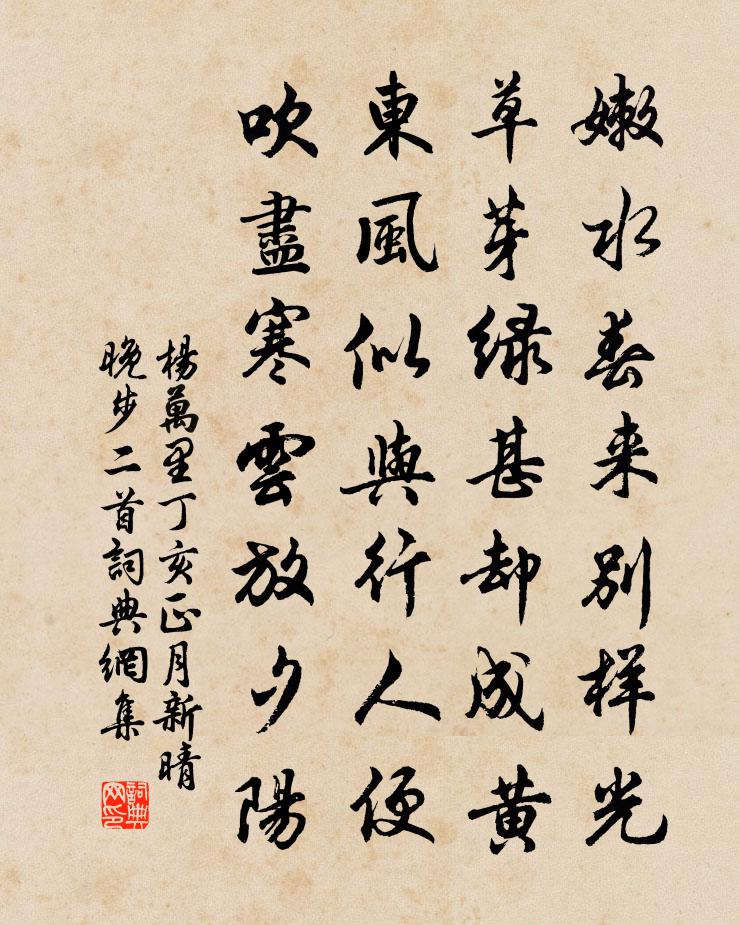 嫩水春来别样光
草芽緑甚却成黄
東風似與行人便
吹盡寒雲放夕陽
楊萬里丁亥正月新晴
晚步二首詞典網集
詞典
网印